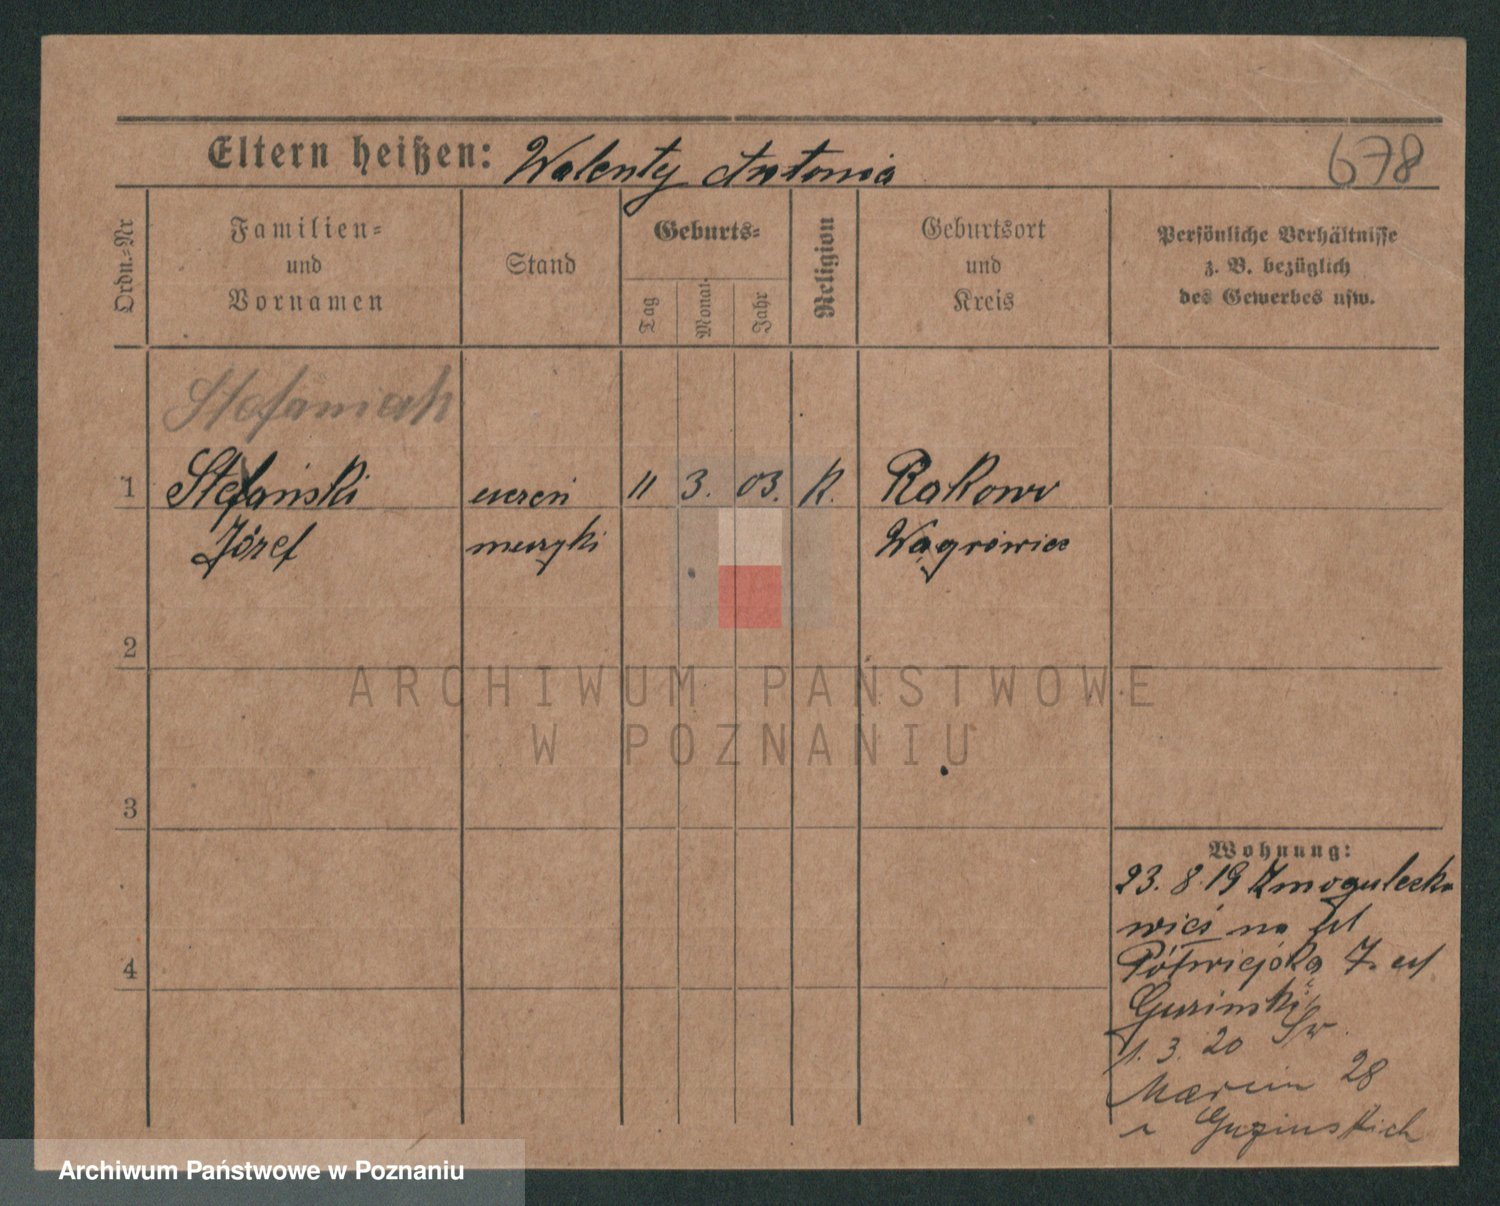 Eltern heißen: Walenty Antonia
678
Ordn.-Nr
Familien-
und
Vornamen
Stand
Geburts-
Tag
Monat
Jahr
Religion
Geburtsort
und
Kreis
Persönliche Verhältnisse
z. B. bezüglich
des Gewerbes usw.
Stefaniak
1 Stefański uczeń 11 3. 03. K. Rakowo
Józef muzyki Wągrówiec
2
ARCHIWUM PAŃSTWOWE
W POZNANIU
3
Wohnung:
23. 8. 19
wieś na
Półwiejska 7.
4
1. 3. 20 Św.
Marcin 28
Guzinskich
Archiwum Państwowe w Poznaniu